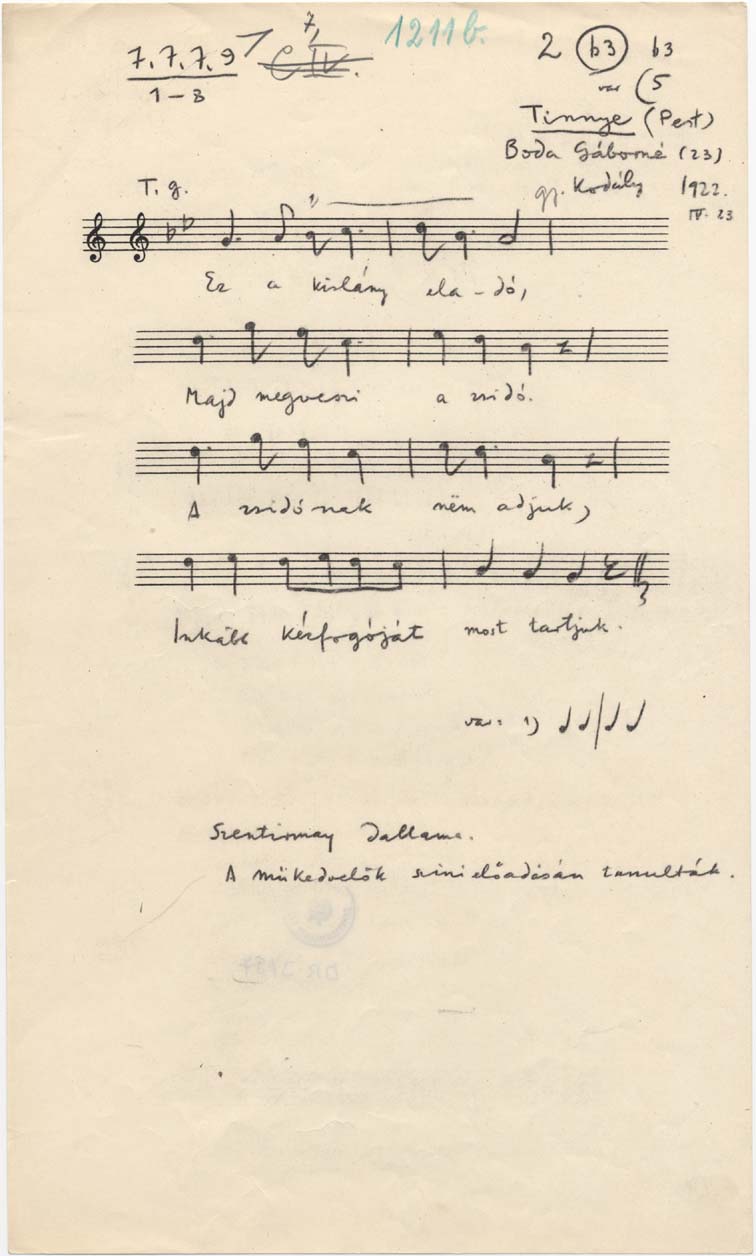 7, 1211b. 2 b3 b3
7. 7. 7. 9 C IV. var (5
1-8 Tinnye (Pest)
Boda Gáborné (23)
T. g. gy. Kodály 1922.
IV. 23
1)
Ez a kislány ela-dó,
Majd megveszi a zsidó.
A zsidónak nëm adjuk,
Inkább kézfogóját most tartjuk.
var: 1)
Szentirmay dallama.
A műkedvelők szinielőadásán tanulták.